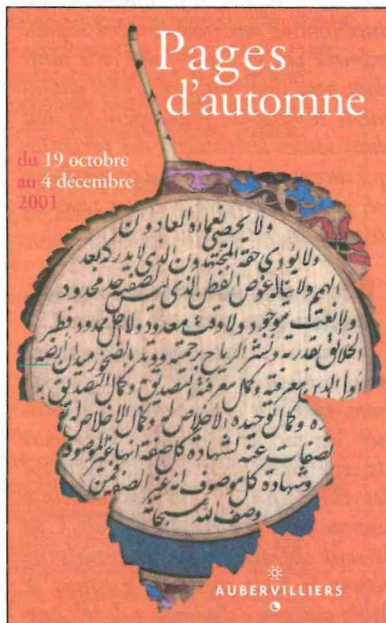 Pages
d'automne
du 19 octobre
au 4 décembre
2001
ولا يحصي نعماءه العادون
ولا يؤدي حقه المجتهدون الذي لا يدركه بعد
الهمم ولا يناله غوص الفطن الذي ليس لصفته حد محدود
ولا نعت موجود ولا وقت معدود ولا اجل ممدود فطر
الخلائق بقدرته ونشر الرياح برحمته ووتد بالصخور ميدان ارضه
اول الدين معرفته وكمال معرفته التصديق وكمال التصديق
ده وكمال توحيده الاخلاص له وكمال الاخلاص له
لصفات عنه لشهادة كل صفة انها غير الموصوف
وشهادة كل موصوف انه غير الصفة فمن
وصف الله سبحانه
AUBERVILLIERS